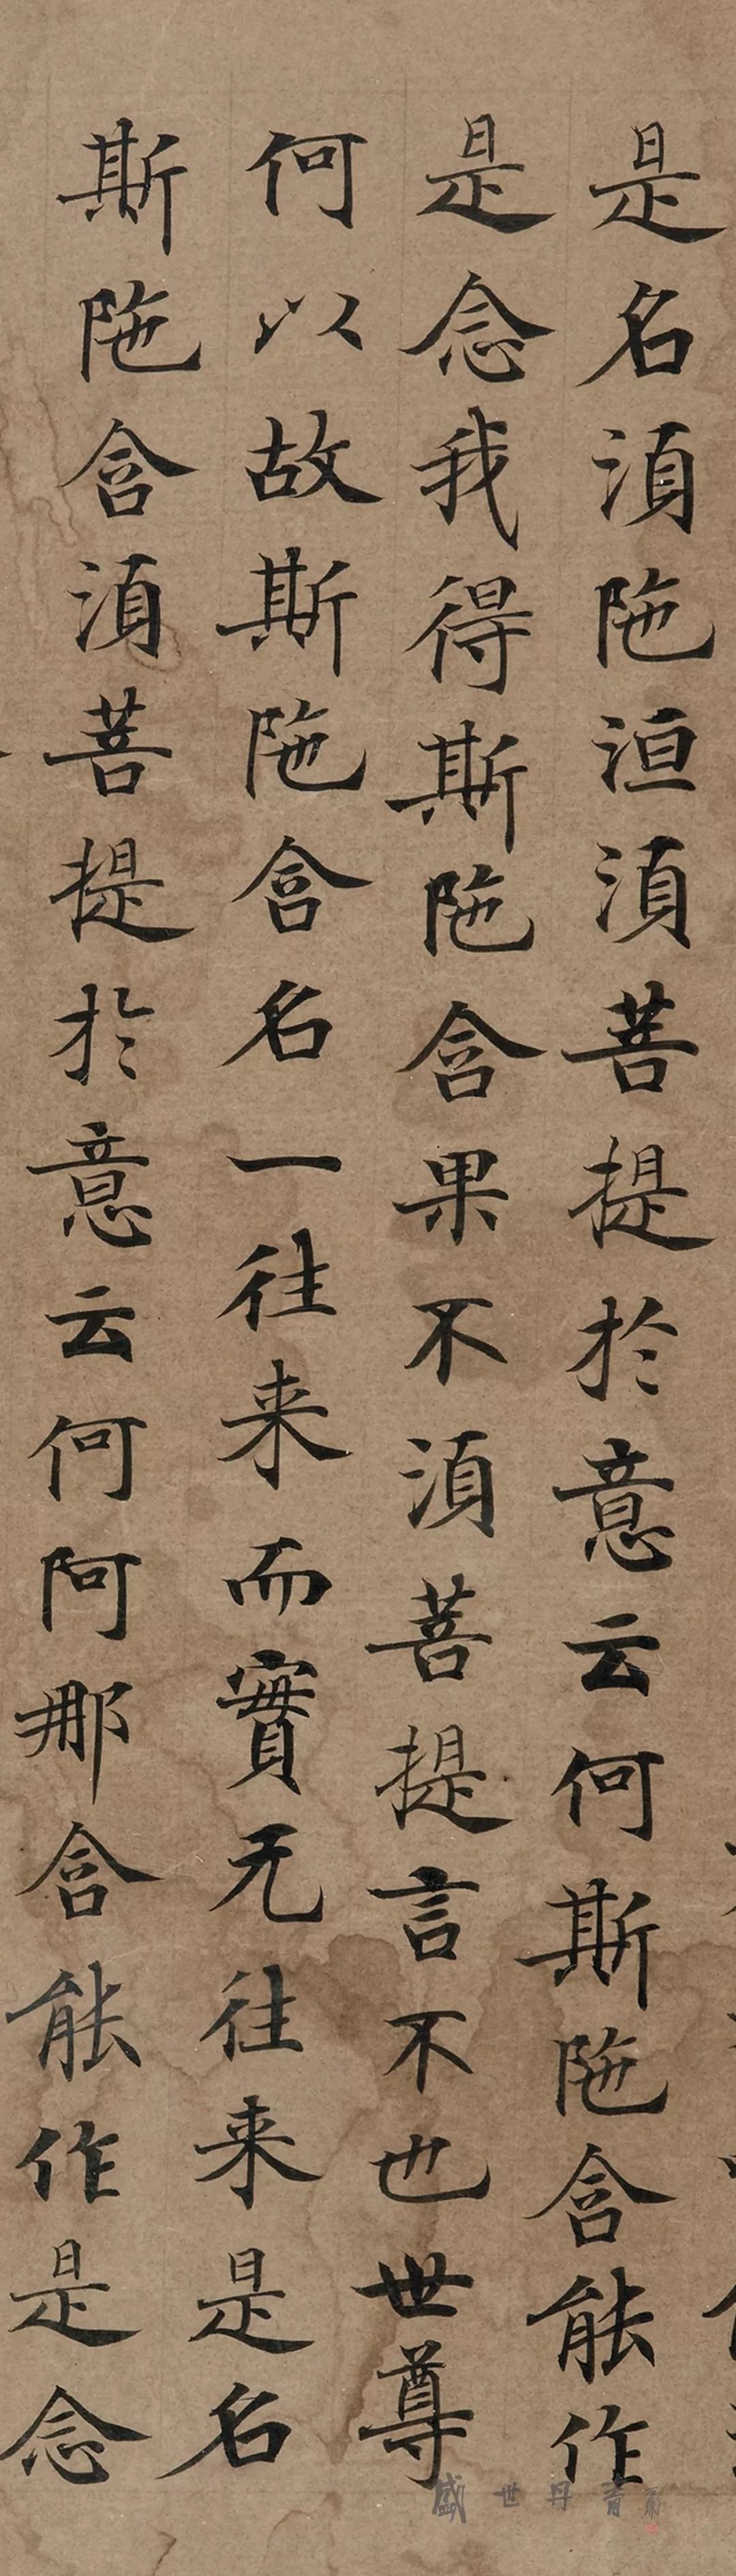 是名湏陁洹湏菩提於意云何斯陁含能作
是念我得斯陁含果不湏菩提言不也世尊
何以故斯陁含名一往来而實无往来是名
斯陁含湏菩提於意云何阿那含能作是念
盛世丹青